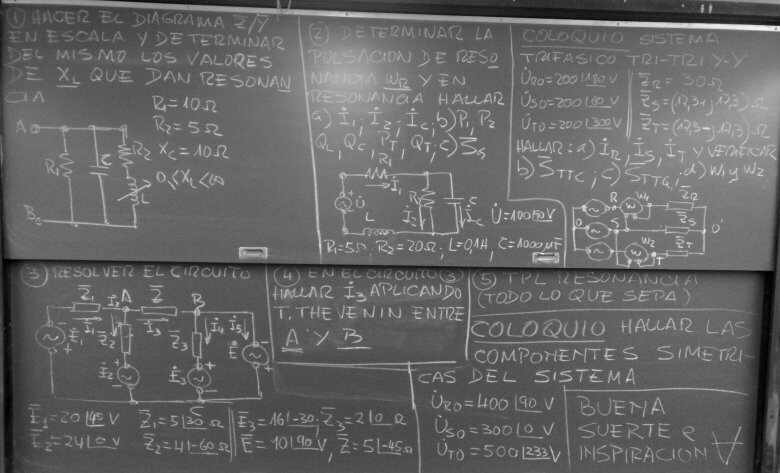 ① HACER EL DIAGRAMA Z̄/Ȳ
EN ESCALA Y DETERMINAR
DEL MISMO LOS VALORES
DE XL QUE DAN RESONAN
CIA
R1=10Ω
R2=5Ω
XC=10Ω
0<XL<∞
A
R1
C
R2
L
B
② DETERMINAR LA
PULSACION DE RESO
NANCIA WR Y EN
RESONANCIA HALLAR
a) İ1, İ2, İC, b) P1, P2
QL, QC, PT, QT; c) S̄G
R1
İ1
U̇
R2
C
İ2
İC
L
U̇=100|0 V
R1=5Ω, R2=20Ω, L=0,1H, C=1000μF
COLOQUIO SISTEMA
TRIFASICO TRI-TRI Y-Y
U̇RO=200|180 V
U̇SO=200|60 V
U̇TO=200|300 V
Z̄R=30Ω
Z̄S=(12,3+j12,3)Ω
Z̄T=(12,3-j12,3)Ω
HALLAR: a) İR, İS, İT Y VERIFICAR
b) S̄TTC; c) S̄TTG; d) W1 y W2
R
W1
Z̄R
O
S
Z̄S
O'
W2
T
Z̄T
③ RESOLVER EL CIRCUITO
Z̄1
İ2
A
Z̄
B
Ė1
İ1
Z̄2
İ3
Z̄3
İ4
İ5
Ė2
Ė3
Ė
Ē1=20|45 V
Z̄1=5|30 Ω
Ē3=16|-30; Z̄3=2|0 Ω
Ē2=24|0 V
Z̄2=4|-60 Ω
Ē=10|90 V, Z̄=5|-45Ω
④ EN EL CIRCUITO ③
HALLAR İ3 APLICANDO
T. THEVENIN ENTRE
A Y B
⑤ TPL RESONANCIA
(TODO LO QUE SEPA)
COLOQUIO HALLAR LAS
COMPONENTES SIMETRI-
CAS DEL SISTEMA
U̇RO=400|90 V
U̇SO=300|0 V
U̇TO=500|233 V
BUENA
SUERTE e
INSPIRACION ∀